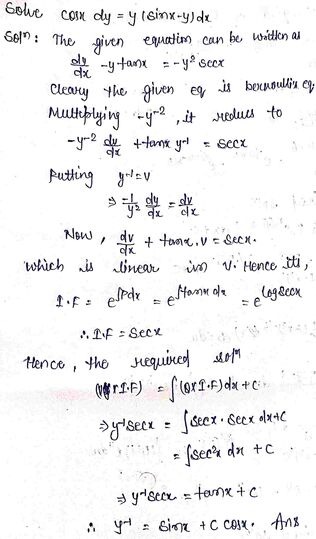 Solve cosx dy = y (sinx-y) dx
Solⁿ: The given equation can be written as
dy/dx - y tanx = -y² secx
Cleary the given eq is bernoullis eq
Multiplying -y⁻², it reduces to
-y⁻² dy/dx + tanx y⁻¹ = secx
Putting y⁻¹ = v
⇒ -1/y² dy/dx = dv/dx
Now, dv/dx + tanx. v = secx.
which is linear in v. Hence its,
I.F = e^∫Pdx = e^∫tanx dx = e^log secx
∴ I.F = secx
Hence, the required solⁿ
(v x I.F) = ∫(Q x I.F) dx + C
⇒ y⁻¹ secx = ∫secx . secx dx + C
= ∫sec²x dx + C
⇒ y⁻¹ secx = tanx + C
∴ y⁻¹ = sinx + C cosx. Ans